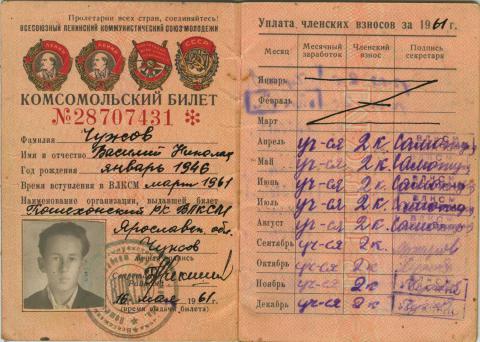 Пролетарии всех стран, соединяйтесь!
ВСЕСОЮЗНЫЙ ЛЕНИНСКИЙ КОММУНИСТИЧЕСКИЙ СОЮЗ МОЛОДЕЖИ
КОМСОМОЛЬСКИЙ БИЛЕТ
№28707431
Фамилия Чужов
Имя и отчество Василий Николаев
Год рождения январь 1946
Время вступления в ВЛКСМ март 1961
Наименование организации, выдавшей билет
Пошехонский РК ВЛКСМ
Ярославск. обл.
Личная подпись
16 мая 1961 г.
(время выдачи билета)
Уплата членских взносов за 1961 г.
Месяц Месячный заработок Членский взнос Подпись секретаря
Январь
Февраль
Март
Апрель уч-ся 2к.
Май уч-ся 2к.
Июнь уч-ся 2к.
Июль уч-ся 2к.
Август уч-ся 2к.
Сентябрь уч-ся 2к.
Октябрь уч-ся 2к.
Ноябрь уч-ся 2к.
Декабрь уч-ся 2к.